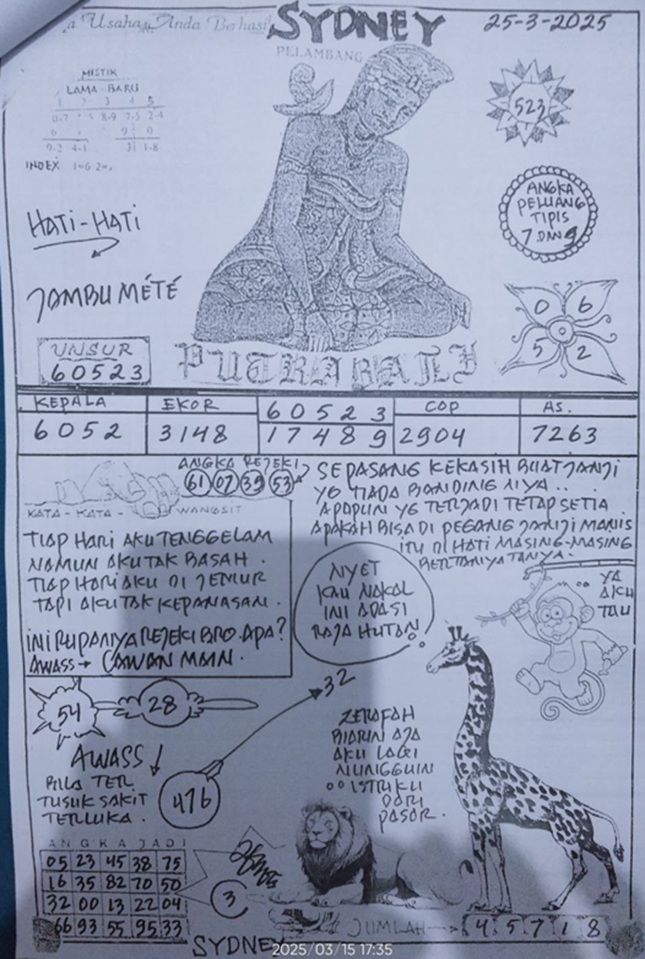 Usaha Anda Berhasil
SYDNEY
25-3-2025
PELAMBANG
MISTIK
LAMA - BARU
INDEX
523
ANGKA
PELUANG
TIPIS
7 DAN 9
HATI-HATI
JAMBU MÉTÉ
0 6
5 2
UNSUR
60523
PUTRA BALI
KEPALA EKOR 60523 COP AS.
6052 3148 17489 2904 7263
ANGKA REJEKI
61 07 39 53
KATA - KATA - WANGSIT
TIAP HARI AKU TENGGELAM
NAMUN AKU TAK BASAH.
TIAP HARI AKU DI JEMUR
TAPI AKU TAK KEPANASAN.
INI RUPANIYA REJEKI BRO. APA?
AWASS → CAWAN MAIN.
SEPASANG KEKASIH BUAT JANJI
YG TIADA BANDING NIYA..
APAPUN YG TERJADI TETAP SETIA
APAKAH BISA DI PEGANG JANJI MANIS
ITU DI HATI MASING-MASING
PERTANIYATANYA.
NYET
KAU NAKAL
INI ADASI
RAJA HUTAN!
YA
AKU
TAU
54
28
32
AWASS!
BILA TER
TUSUK SAKIT
TERLUKA.
476
ZERAFAH
BIARIN AJA
AKU LAGI
NUNGGUIN
ISTRIKU
DARI
PASAR.
ANGKA JADI
05 23 45 38 75
16 35 82 70 50
32 00 13 22 04
66 93 55 95 33
3
JUMLAH → 4 5 7 1 8
SYDNEY
2025/03/15 17:35